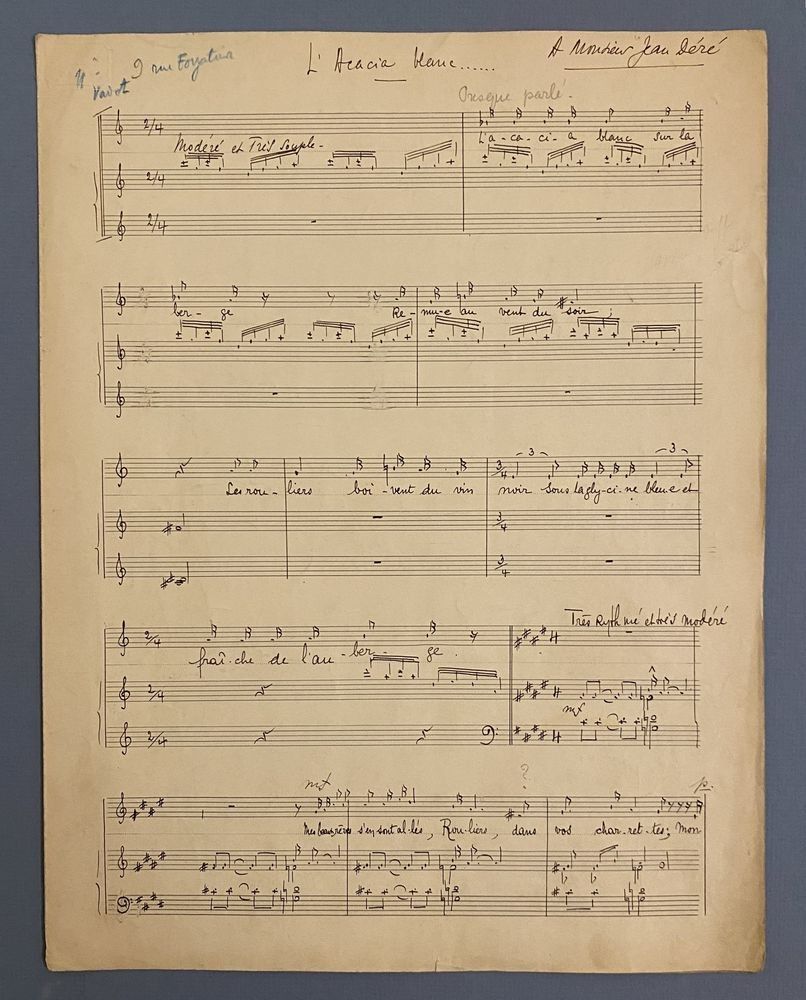 9 rue
L'Acacia blanc......
A Monsieur Jean Déré
Vadot
Presque parlé.
2/4
Modéré et Très Souple-
L'a-ca-ci-a blanc sur la
2/4
2/4
ber-ge Re-mu-e au vent du soir;
3/4 3 3
Les rou-liers boi-vent du vin noir sous la gly-ci-ne bleue et
3/4
3/4
Très Rythmé et très modéré
2/4 4
fraî-che de l'au-ber-ge.
2/4 4
mf
2/4 4
mf ? p.
Mes beaux rêves s'en sont al-lés, Rou-liers, dans vos char-ret-tes; mon